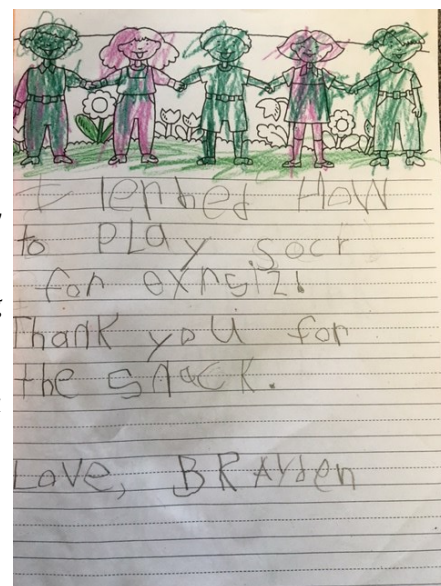 I lerhed HoW
to PLAy socr
for exrsiz!
Thank you for
the snack.
Love, BRAyden